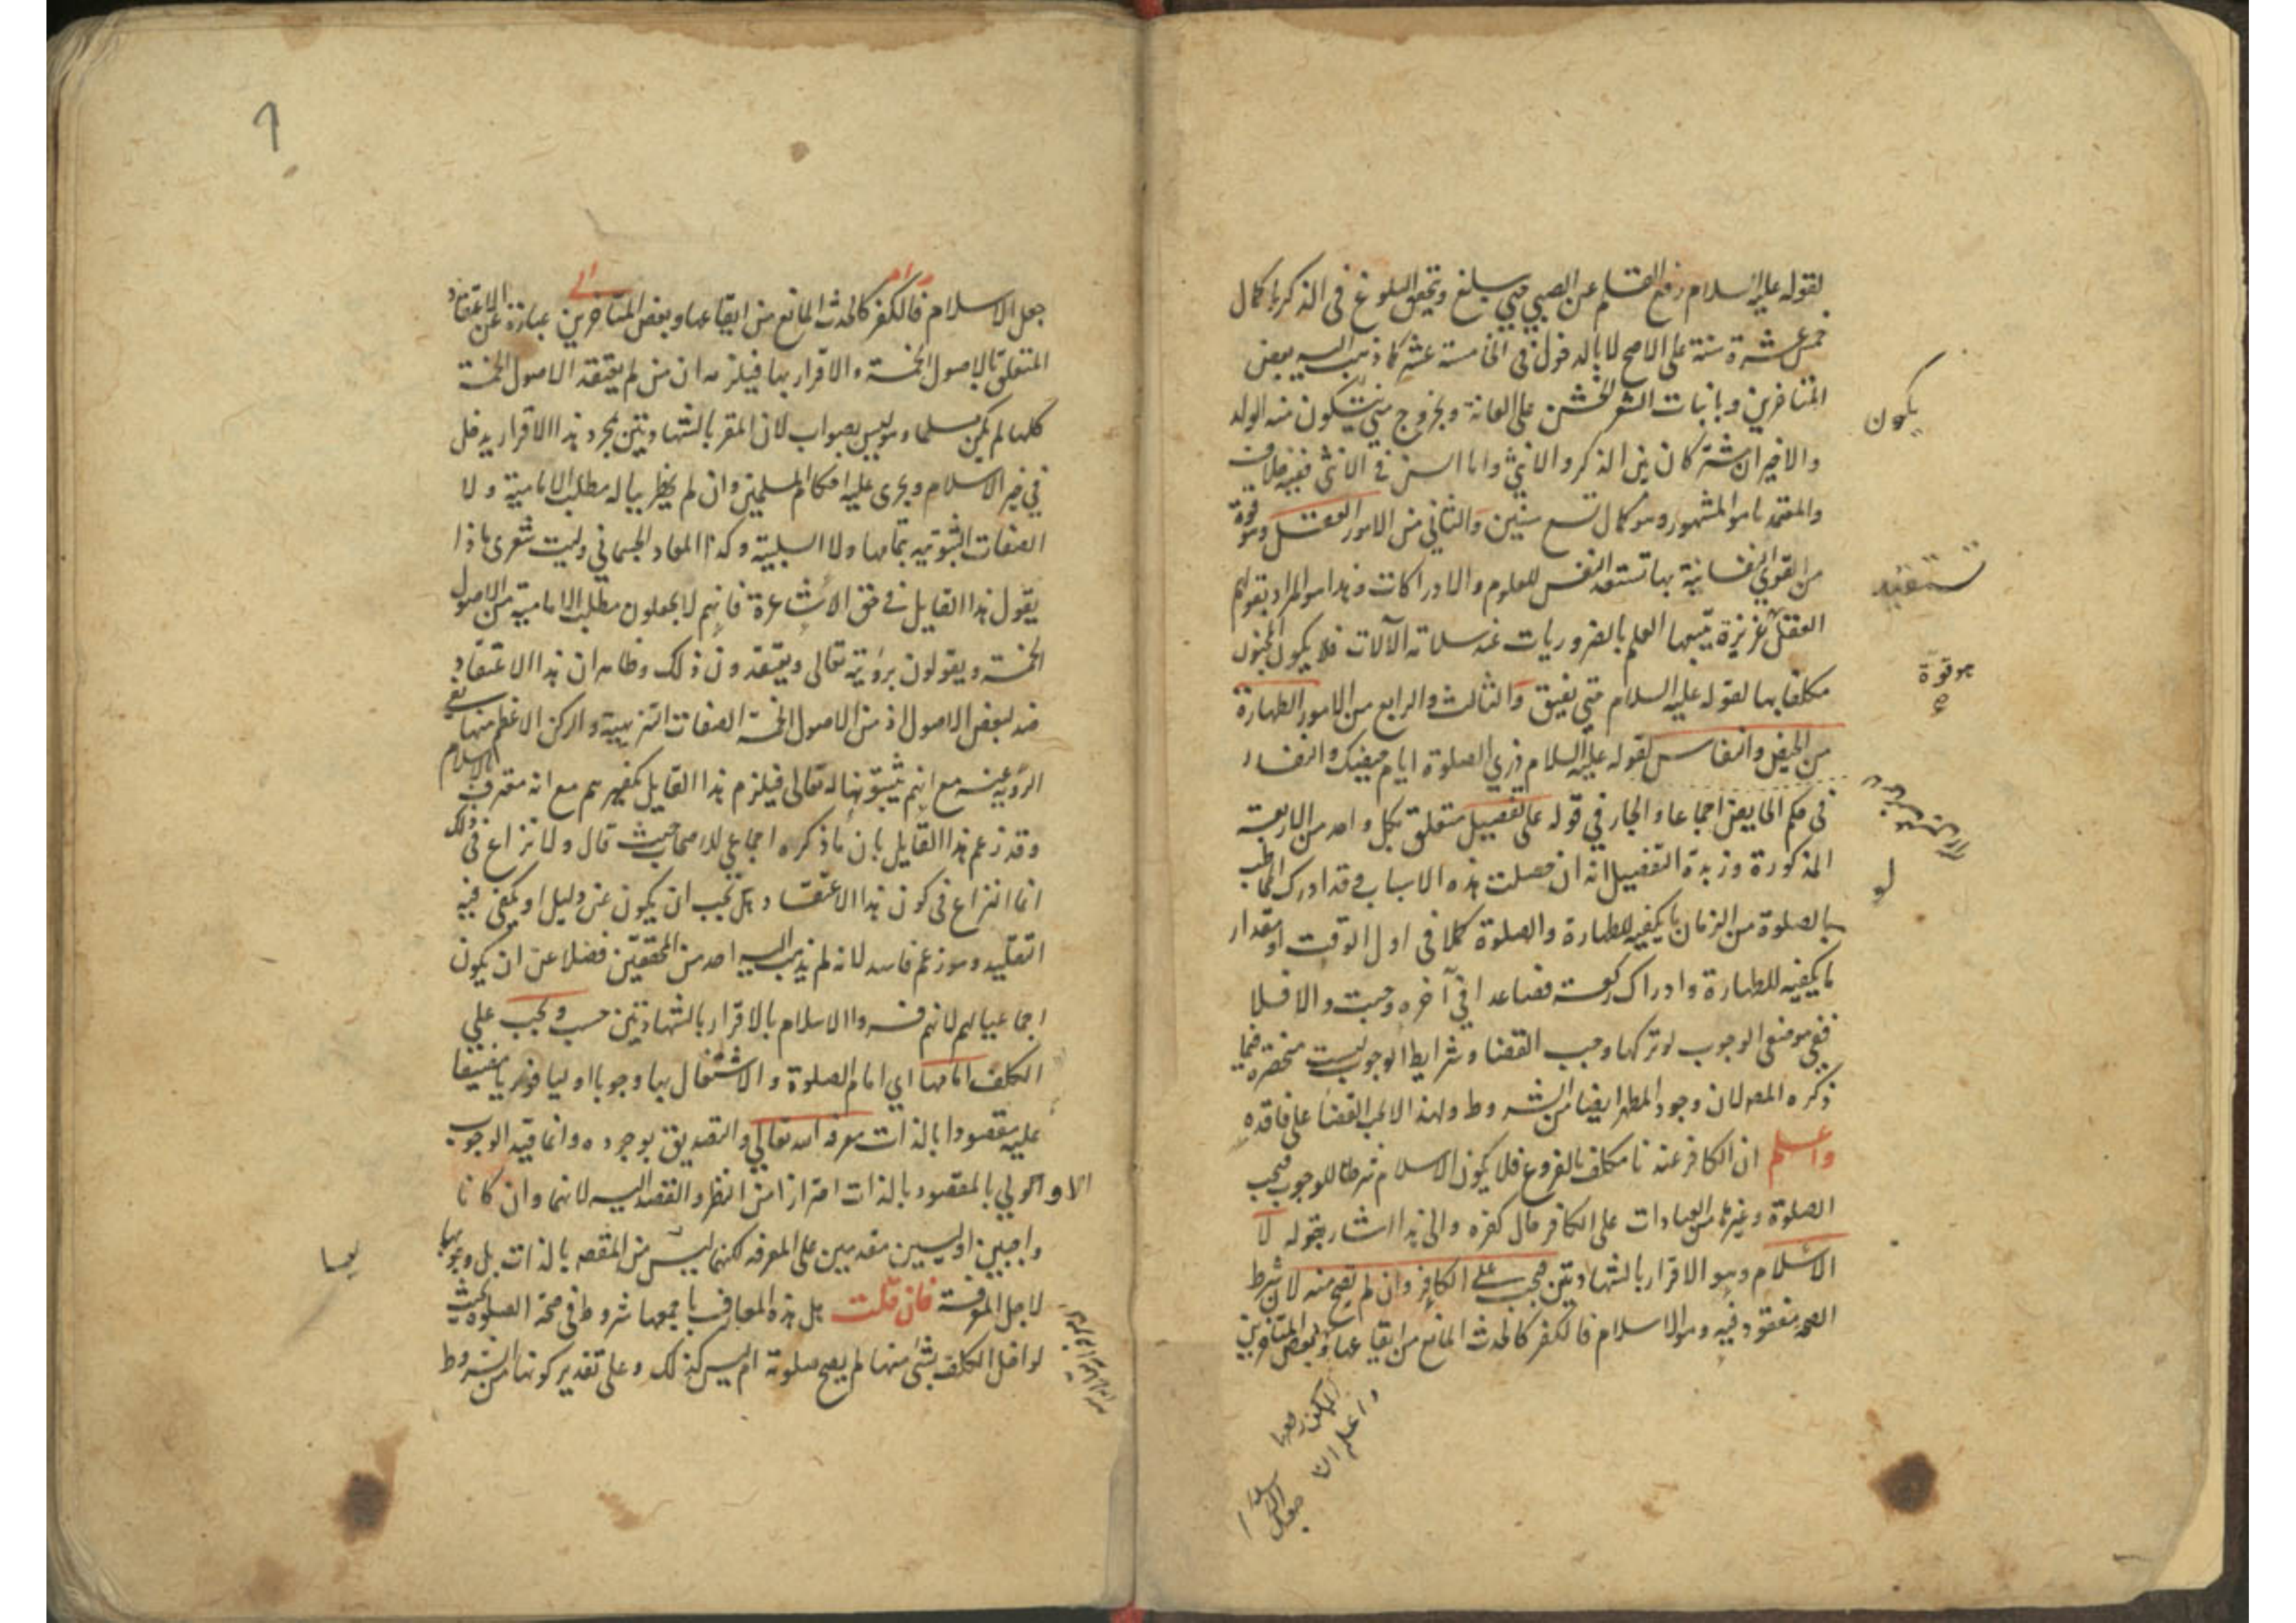 لقوله عليه السلام رفع القلم عن الصبي حتى يبلغ وتحقق البلوغ فى الذكر باكمال
خمس عشرة سنة على الاصح لا بالدخول فى الخامسة عشر كما ذهب اليه بعض
المتاخرين وبانبات الشعر الخشن على العانة وبخروج منى يتكون منه الولد
والاخيران مشتركان بين الذكر والانثى واما السن فى الانثى ففيه خلاف
والمعتمد ما هو المشهور وهو كمال تسع سنين والثانى من الامور العقل وهو قوة
من القوى النفسانية بها تستعد النفس للعلوم والادراكات وهذا هو المراد بقولهم
العقل غريزة يتبعها العلم بالضروريات عند سلامة الآلات فلا يكون المجنون
مكلفا بها لقوله عليه السلام حتى يفيق والثالث والرابع من الامور الطهارة
من الحيض والنفاس لقوله عليه السلام دعي الصلوة ايام حيضك والنفساء
فى حكم الحايض اجماعا والجار في قوله على تفصيل متعلق بكل واحد من الاربعة
المذكورة وزبدة التفصيل انه ان حصلت هذه الاسباب وقد ادرك المخاطب
بالصلوة من الزمان ما يكفيه للطهارة والصلوة كملا فى اول الوقت او مقدار
ما يكفيه للطهارة وادراك ركعة فصاعدا في آخره وجبت والا فلا
ففي موضع الوجوب لو تركها وجب القضا وشرايط الوجوب ليست منحصرة فيما
ذكره المص لان وجود المطهر ايضا من الشروط ولهذا لا يجب القضا على فاقده
واعلم ان الكافر عندنا مكلف بالفروع فلا يكون الاسلام شرطا للوجوب فيجب
الصلوة وغيرها من العبادات على الكافر حال كفره والى هذا اشار بقوله لا
الاسلام وهو الاقرار بالشهادتين فيجب على الكافر وان لم يصح منه لان شرط
الصحة مفقود فيه وهو الاسلام فالكفر كالحدث المانع من ايقاعها وبعض المتاخرين
يكون
تستعد
هو قوة
لو
واعلم ان
جعل الاسلام فالكفر كالحدث المانع من ايقاعها وبعض المتاخرين عبارة عن الاعتقاد
المتعلق بالاصول الخمسة والاقرار بها فيلزمه ان من لم يعتقد الاصول الخمسة
كلها لم يكن مسلما وهو ليس بصواب لان المقر بالشهادتين بمجرد هذا الاقرار يدخل
في خير الاسلام ويجرى عليه احكام المسلمين وان لم يخطر بباله مطلب الامامية ولا
الصفات الثبوتيه بتمامها ولا السلبية وكذا المعاد الجسماني وليت شعرى ماذا
يقول هذا القايل فى حق الاشاعرة فانهم لا يجعلون مطلب الامامية من الاصول
الخمسة ويقولون برؤيته تعالى ويعتقدون ذلك وظاهر ان هذا الاعتقاد
ضد لبعض الاصول اذ من الاصول الخمسة الصفات التنزيهية والركن الاعظم منها نفى
الروية عنه مع انهم يثبتونها له تعالى فيلزم هذا القايل تكفيرهم مع انه معترف بالاسلام
وقد زعم هذا القايل بان ما ذكره اجماعي للاصحاب حيث قال ولا نزاع فى ذلك
انما النزاع فى كون هذا الاعتقاد هل يجب ان يكون عن دليل او يكفى فيه
التقليد وهو زعم فاسد لانه لم يذهب اليه احد من المحققين فضلا عن ان يكون
اجماعيا لهم لانهم فسروا الاسلام بالاقرار بالشهادتين حسب ويجب علي
المكلف امامها اي امام الصلوة والاشتغال بها وجوبا اوليا فوريا مضيقا
عليه مقصودا بالذات معرفة الله تعالى والتصديق بوجوده وانما قيد الوجوب
الاولي بالمقصود بالذات احترازا من النظر والقصد اليه لانهما وان كانا
واجبين اوليين مقدمين على المعرفه لكنهما ليس من المقصد بالذات بل وجوبهما
لاجل المعرفة فان قلت هل هذه المعارف باجمعها شروط فى صحة الصلوة بحيث
لو اخل المكلف بشئ منها لم يصح صلوته ام ليس كذلك وعلى تقدير كونها من الشروط